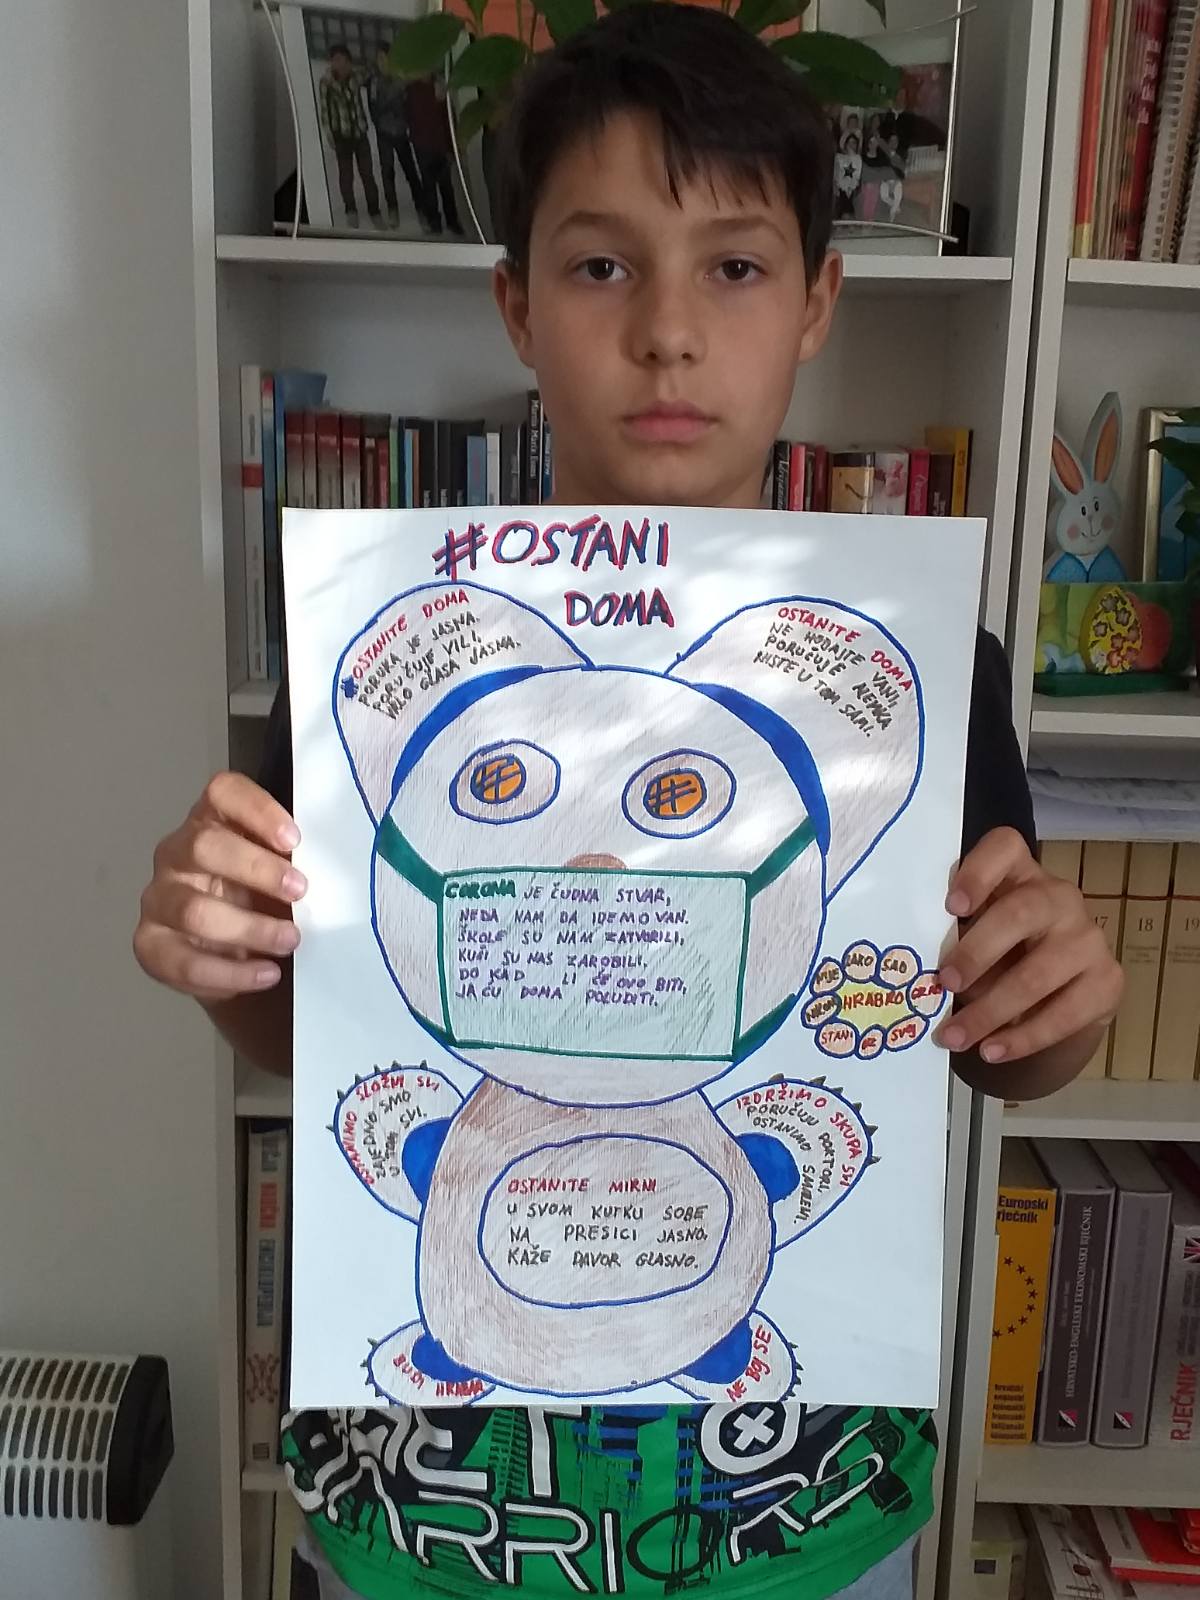 #OSTANI
DOMA
#OSTANITE DOMA
PORUKA JE JASNA.
PORUČUJE VILI,
VRLO GLASA JASNA.
OSTANITE DOMA
NE HODAJTE VANI,
PORUČUJE NEMKA
NISTE U TOM SAMI.
CORONA JE ČUDNA STVAR,
NEDA NAM DA IDEMO VAN.
ŠKOLE SU NAM ZATVORILI,
KUĆI SU NAS ZAROBILI.
DO KAD LI ĆE OVO BITI,
JA ĆU DOMA POLUDITI.
NIJE
LAKO
SAD
NIKOM
HRABRO
GRAD
STANI
UZ
SVOJ
OSTANIMO SLOŽNI SVI
ZAJEDNO SMO
U TOM SVI.
IZDRŽIMO SKUPA SVI
PORUČUJU DOKTORI,
OSTANIMO SMIRENI.
OSTANITE MIRNI
U SVOM KUTKU SOBE
NA PRESICI JASNO,
KAŽE DAVOR GLASNO.
BUDI HRABAR
NE BOJ SE
17
18
19
Europski
rječnik
HRVATSKO-ENGLESKI EKONOMSKI RJEČNIK
RJEČNIK
WARRIORS